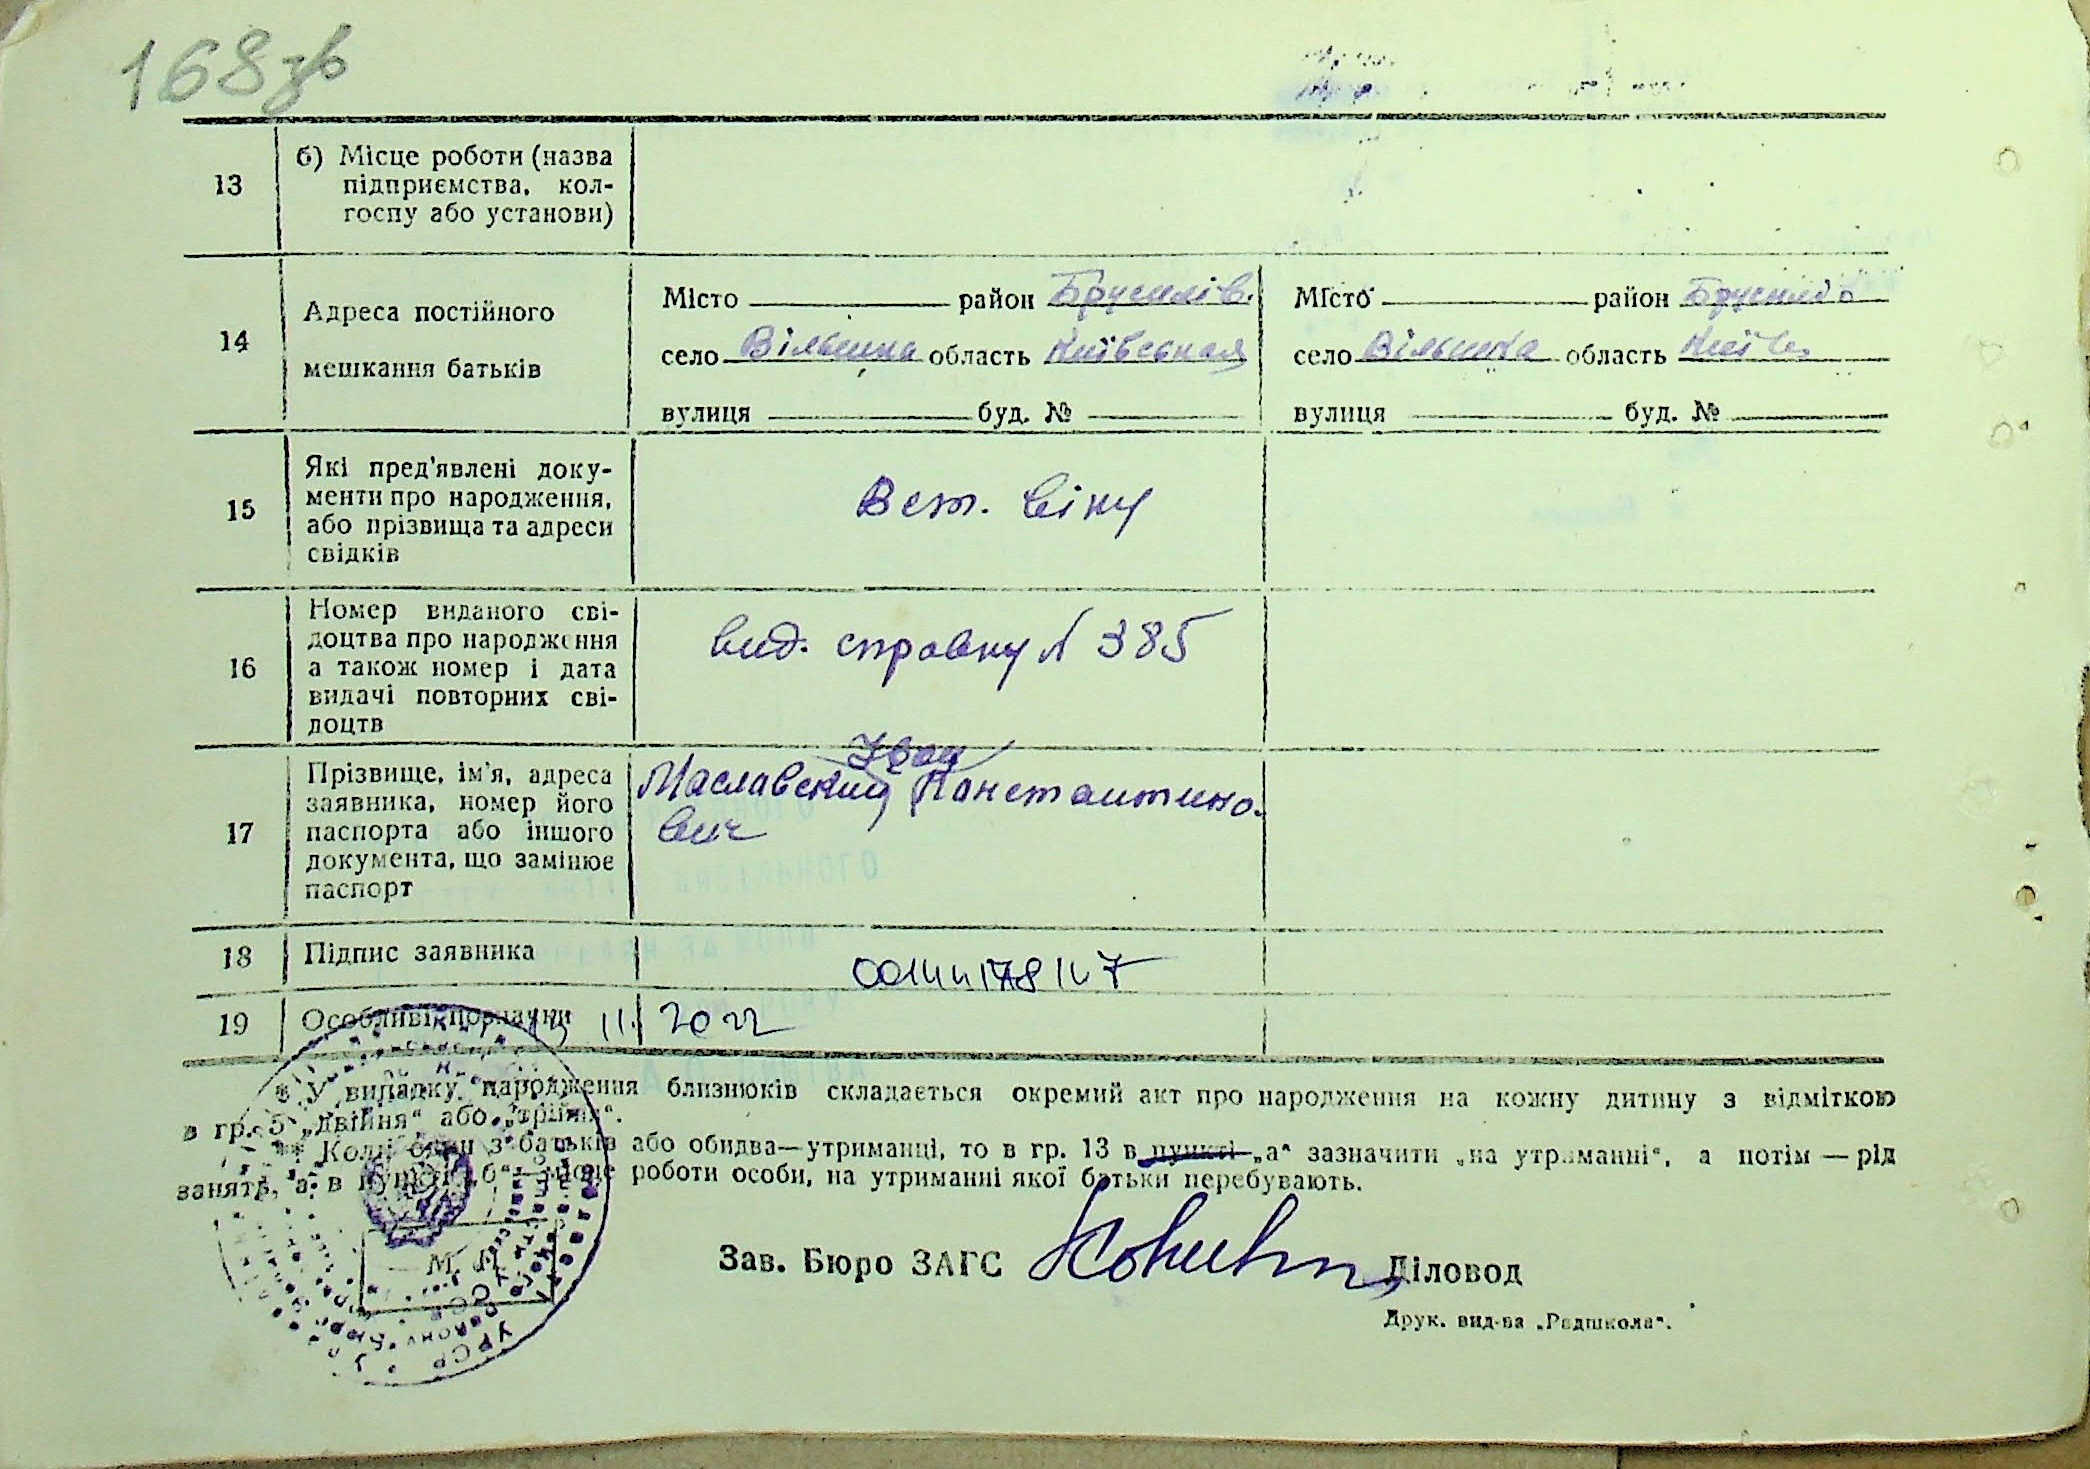 168зв
13
б) Місце роботи (назва
підприємства, кол-
госпу або установи)
14
Адреса постійного
мешкання батьків
Місто район Брусилів.
село Вільшка область Київськая
вулиця буд. №
Місто район Брусилів
село Вільшка область Київ
вулиця буд. №
15
Які пред'явлені доку-
менти про народження,
або прізвища та адреси
свідків
Вст. віку
16
Номер виданого сві-
доцтва про народження
а також номер і дата
видачі повторних сві-
доцтв
вид. справку № 385
17
Прізвище, ім'я, адреса
заявника, номер його
паспорта або іншого
документа, що замінює
паспорт
Іван
Маславский Константино-
вич
18
Підпис заявника
00144178147
19
Особливі познаки
11. 2022
* У випадку народження близнюків складається окремий акт про народження на кожну дитину з відміткою
в гр. 5 „двійня“ або „трійня“.
** Коли один з батьків або обидва—утриманці, то в гр. 13 в пункті „а“ зазначити „на утриманні“, а потім — рід
занять, а в пункті „б“—місце роботи особи, на утриманні якої батьки перебувають.
М. П.
Зав. Бюро ЗАГС Діловод
Друк. вид-ва „Радшкола“.